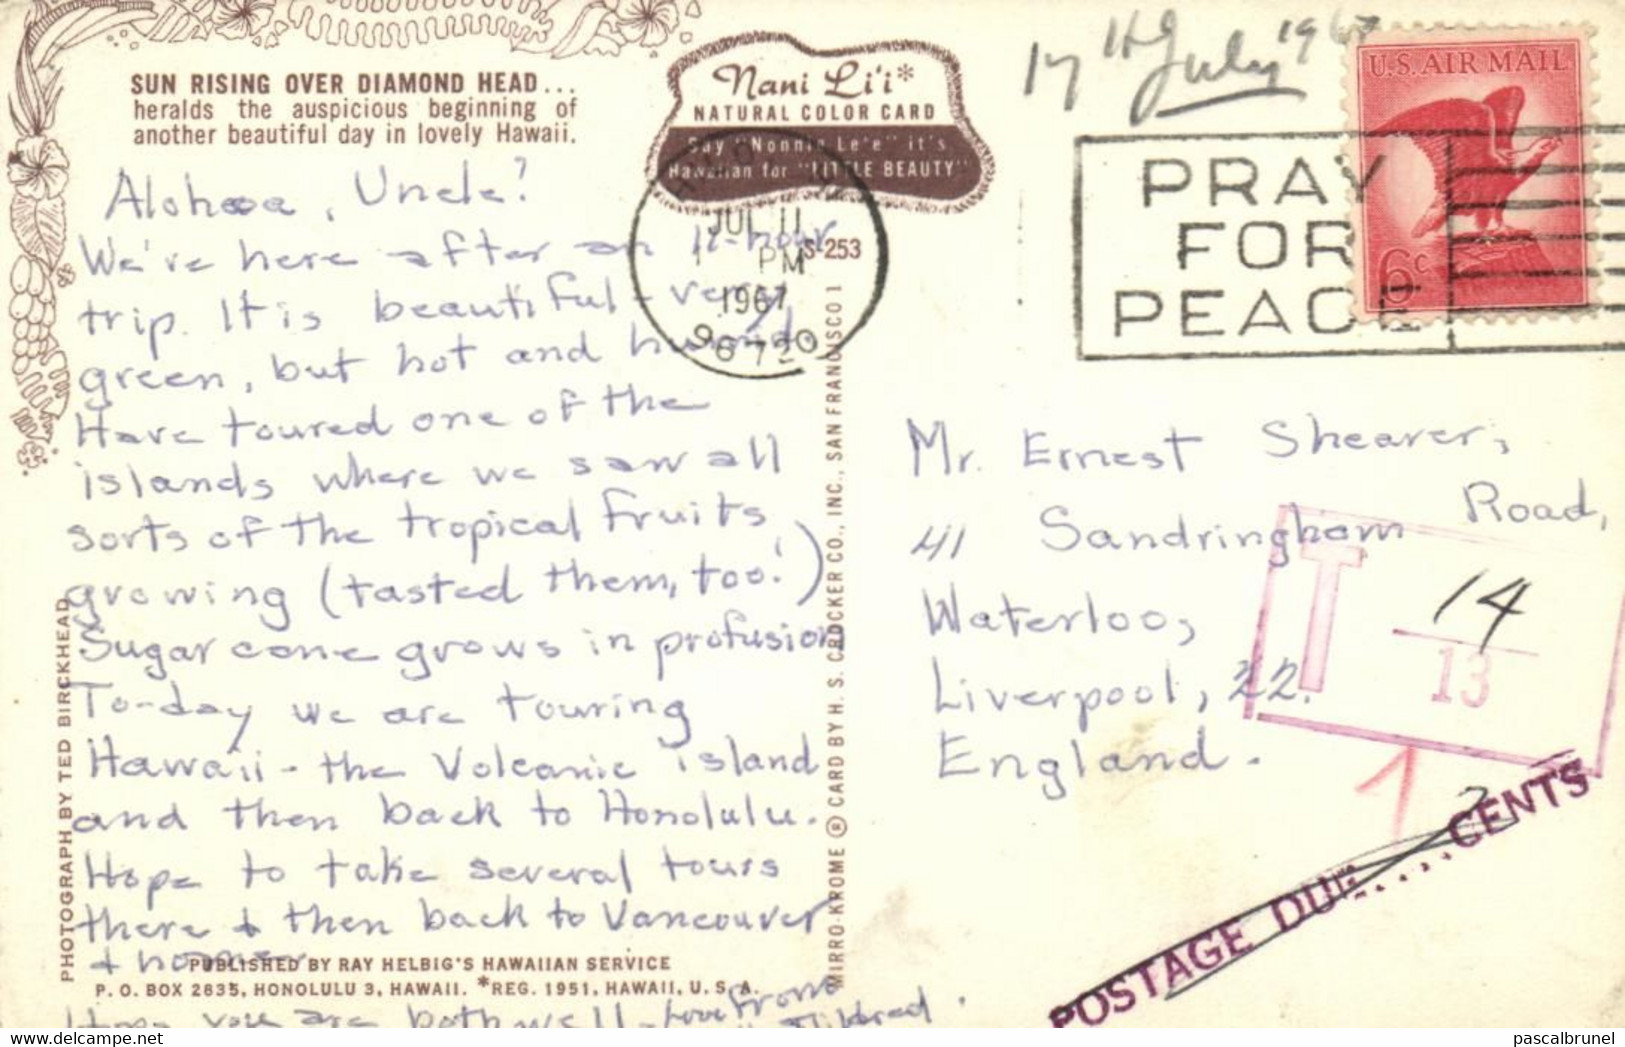 SUN RISING OVER DIAMOND HEAD...
heralds the auspicious beginning of
another beautiful day in lovely Hawaii.
Nani Li'i*
NATURAL COLOR CARD
Say "Nonnie Le'e" it's
Hawaiian for "LITTLE BEAUTY"
S-253
17th July 1967
U.S. AIR MAIL
6c
PRAY
FOR
PEACE
JUL 11
PM
1967
96720
Alohaoa, Uncle!
We've here after an 11-hour
trip. It is beautiful - very
green, but hot and humid.
Have toured one of the
islands where we saw all
sorts of the tropical fruits
growing (tasted them, too!)
Sugar cane grows in profusion
To-day we are touring
Hawaii - the Volcanic island
and then back to Honolulu.
Hope to take several tours
there + then back to Vancouver
+ home.
Hope you are both well - Love from
Mildred.
Mr. Ernest Shearer,
41 Sandringham Road,
Waterloo,
Liverpool, 22.
England.
T 14
13
1
POSTAGE DUE.....CENTS
2
PHOTOGRAPH BY TED BIRCKHEAD
MIRRO-KROME ® CARD BY H. S. CROCKER CO., INC., SAN FRANCISCO 1
PUBLISHED BY RAY HELBIG'S HAWAIIAN SERVICE
P. O. BOX 2835, HONOLULU 3, HAWAII. *REG. 1951, HAWAII, U. S. A.
pascalbrunel